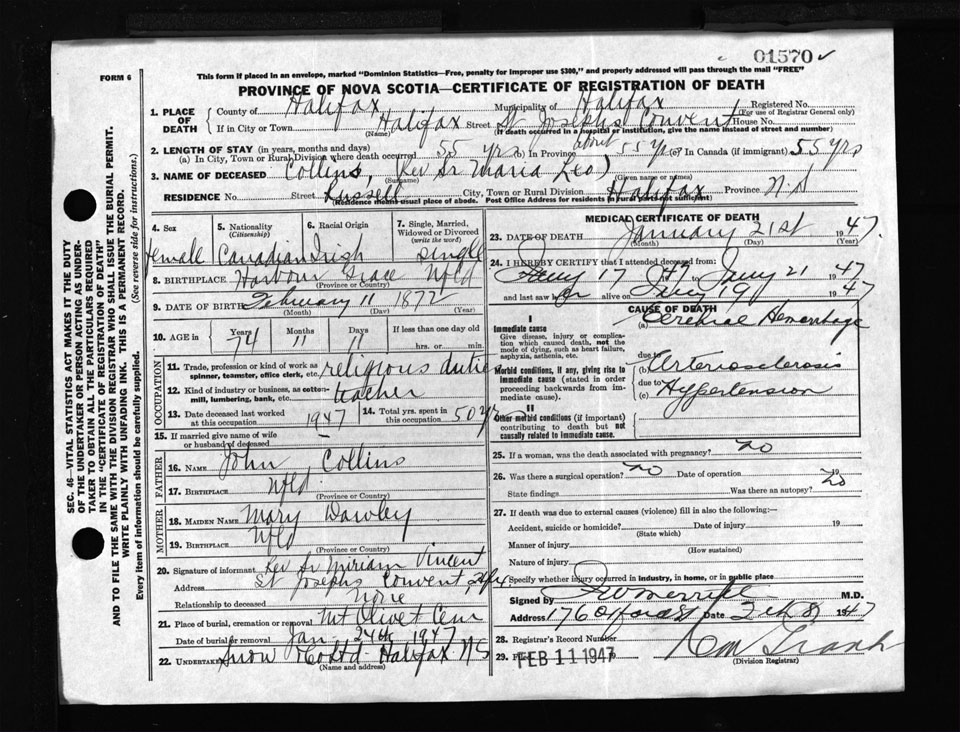 01570
FORM 6
This form if placed in an envelope, marked "Dominion Statistics—Free, penalty for improper use $300," and properly addressed will pass through the mail "FREE"
PROVINCE OF NOVA SCOTIA—CERTIFICATE OF REGISTRATION OF DEATH
1. PLACE OF DEATH County of Halifax Municipality of Halifax Registered No.
(For use of Registrar General only)
If in City or Town Halifax Street St Josephs Convent House No.
(Name) (If death occurred in a hospital or institution, give the name instead of street and number)
2. LENGTH OF STAY (in years, months and days)
(a) In City, Town or Rural Division where death occurred 55 yrs (b) In Province about 55 yrs (c) In Canada (if immigrant) 55 yrs
3. NAME OF DECEASED Collins, (Rev Sr Maria Leo)
(Surname) (Given name or names)
RESIDENCE No. Street Russell City, Town or Rural Division Halifax Province N.S
(Residence means usual place of abode. Post Office Address for residents in rural parts not sufficient)
4. Sex 5. Nationality (Citizenship) 6. Racial Origin 7. Single, Married, Widowed or Divorced (write the word)
Femall Canadian Irish single
8. BIRTHPLACE Harbour Grace Nfld
(Province or Country)
9. DATE OF BIRTH February 11 1872
(Month) (Day) (Year)
10. AGE in Years Months Days If less than one day old
74 11 11 hrs. or min.
OCCUPATION
11. Trade, profession or kind of work as spinner, teamster, office clerk, etc. religious dutie
12. Kind of industry or business, as cotton-mill, lumbering, bank, etc. teacher
13. Date deceased last worked at this occupation 1947 14. Total yrs. spent in this occupation 50 yrs
15. If married give name of wife or husband of deceased
FATHER
16. NAME John Collins
17. BIRTHPLACE Nfld
(Province or Country)
MOTHER
18. MAIDEN NAME Mary Dawley
19. BIRTHPLACE Nfld
(Province or Country)
20. Signature of informant Rev Sr Miriam Vincent
Address St Josephs Convent, Hfx
Relationship to deceased None
21. Place of burial, cremation or removal Mt Olivet Cem
Date of burial or removal Jan 24th 1947
22. UNDERTAKER Snow & Co Ltd - Halifax NS
(Name and address)
MEDICAL CERTIFICATE OF DEATH
23. DATE OF DEATH January 21st 1947
(Month) (Day) (Year)
24. I HEREBY CERTIFY that I attended deceased from:
17 47 to 21 1947
and last saw her alive on 19 1947
CAUSE OF DEATH
I
Immediate cause
Give disease, injury or complication which caused death, not the mode of dying, such as heart failure, asphyxia, asthenia, etc.
(a) Cerebral Hemorrhage
due to
Morbid conditions, if any, giving rise to immediate cause (stated in order proceeding backwards from immediate cause).
(b) Arteriosclerosis
due to
(c) Hypertension
II
Other morbid conditions (if important) contributing to death but not causally related to immediate cause.
25. If a woman, was the death associated with pregnancy? no
26. Was there a surgical operation? no Date of operation 19
State findings Was there an autopsy? no
27. If death was due to external causes (violence) fill in also the following:—
Accident, suicide or homicide? Date of injury 19
(State which)
Manner of injury
(How sustained)
Nature of injury
Specify whether injury occurred in industry, in home, or in public place
Signed by M.D.
Address 176 Date 8 1947
28. Registrar's Record Number
29. Filed FEB 11 1947
(Division Registrar)
SEC. 46—VITAL STATISTICS ACT MAKES IT THE DUTY OF THE UNDERTAKER OR PERSON ACTING AS UNDERTAKER TO OBTAIN ALL THE PARTICULARS REQUIRED IN THE "CERTIFICATE OF REGISTRATION OF DEATH" AND TO FILE THE SAME WITH THE DIVISION REGISTRAR WHO SHALL ISSUE THE BURIAL PERMIT.
WRITE PLAINLY WITH UNFADING INK. THIS IS A PERMANENT RECORD.
Every item of information should be carefully supplied. (See reverse side for instructions).